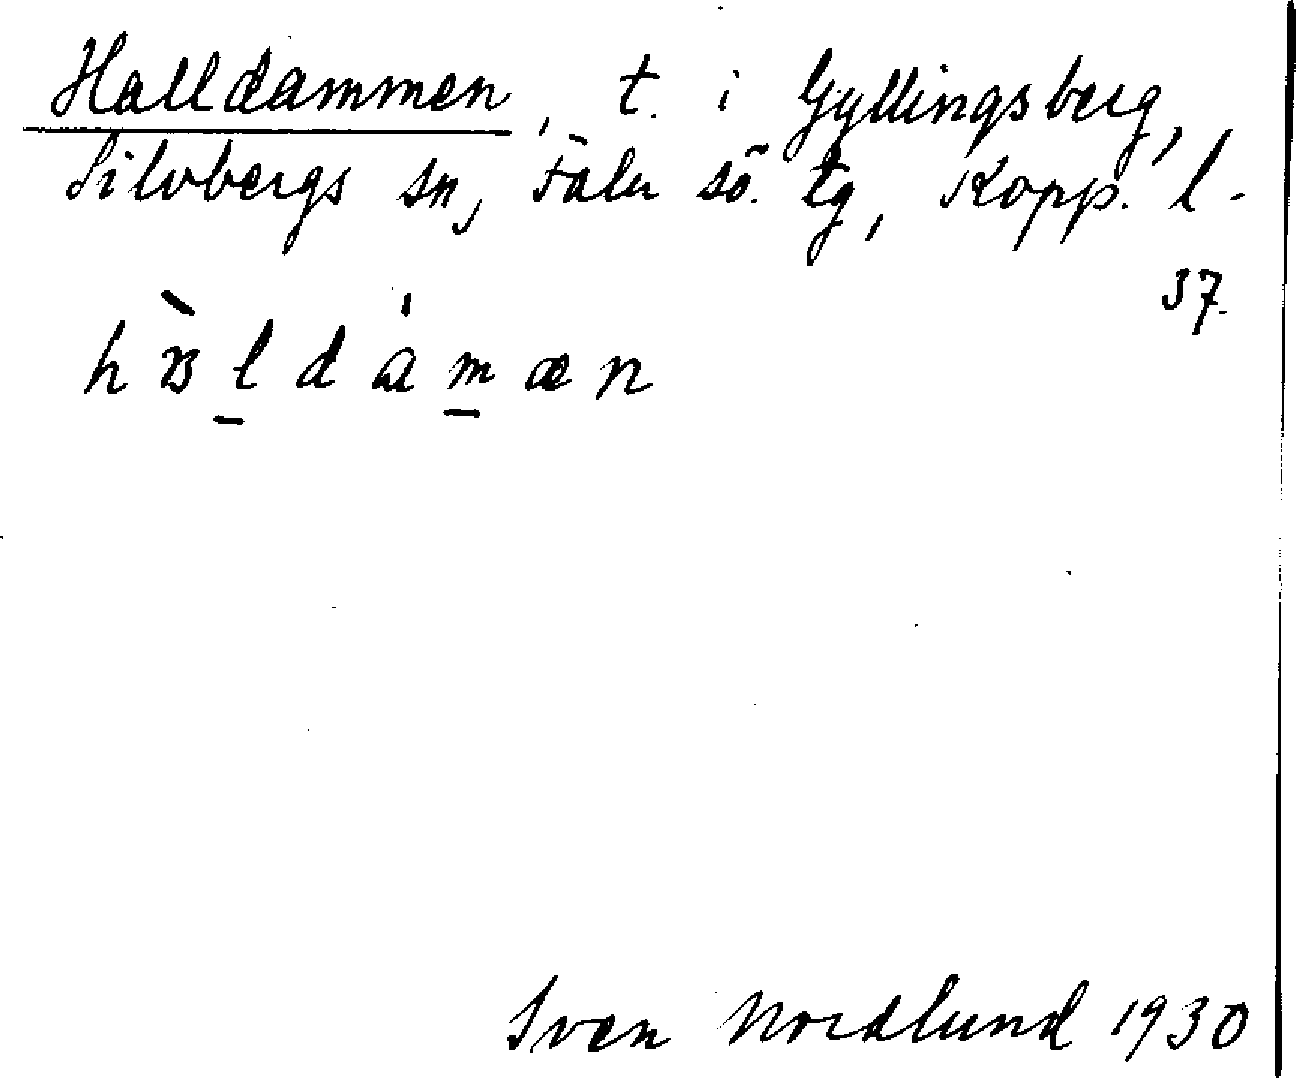 Halldammen, t. i Gyllingsberg,
Silvbergs sn, Falu sö. tg, Kopp. l.
37.
Sven Nordlund 1930